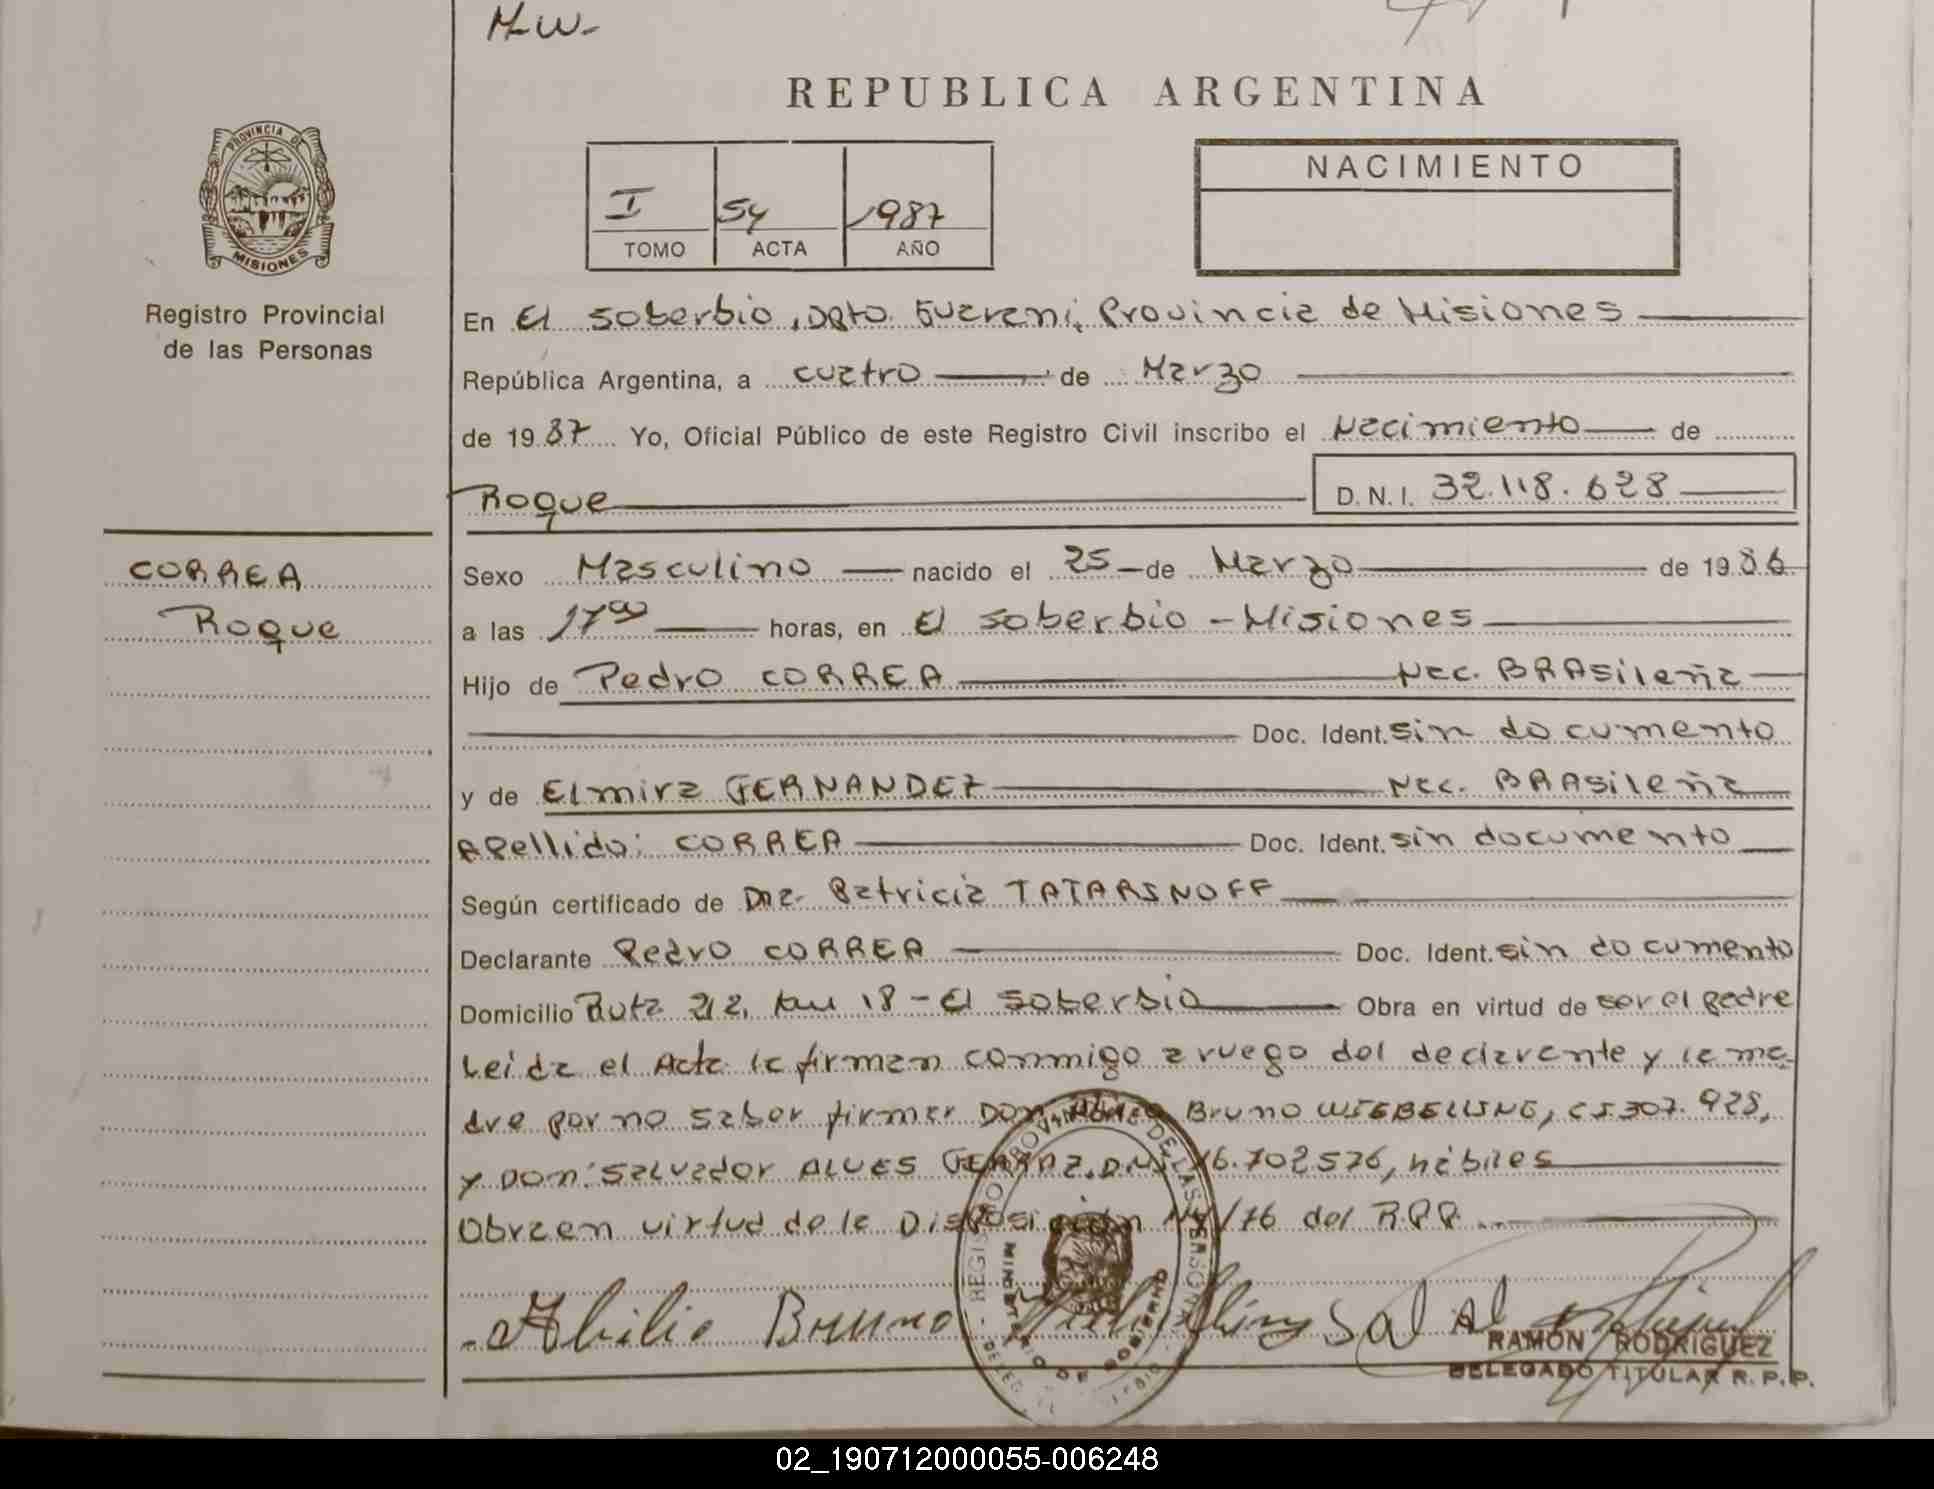 M.W.-
REPUBLICA ARGENTINA
PROVINCIA DE
MISIONES
I 54 1987
TOMO ACTA AÑO
NACIMIENTO
Registro Provincial
de las Personas
En El Soberbio, Dpto. Guarani, Provincia de Misiones
República Argentina, a cuatro de Marzo
de 19 87 Yo, Oficial Público de este Registro Civil inscribo el Nacimiento de
Roque D.N.I. 32.118.628
CORREA
Roque
Sexo Masculino nacido el 25 de Marzo de 19 86
a las 17 00 horas, en El Soberbio - Misiones
Hijo de Pedro CORREA Nac. BRAsileña
Doc. Ident. sin documento
y de Elmira FERNANDEZ Nac. BRAsileña
Apellido: CORREA Doc. Ident. sin documento
Según certificado de Dra. Patricia TATARSNOFF
Declarante Pedro CORREA Doc. Ident. sin documento
Domicilio Ruta 212, km 18 - El Soberbio Obra en virtud de ser el padre
Leida el Acta la firman conmigo a ruego del declarante y la ma-
dre por no saber firmar Don Bruno WIEBELLING, CI 307.928,
y Don: Salvador ALVES FERRAZ, DNI 16.702576, hábiles
Obra en virtud de la Disposición /76 del R.P.P.
REGISTRO PROVINCIAL DE LAS PERSONAS
MINISTERIO DE GOBIERNO
Abilio Bruno Sal Al
RAMON RODRIGUEZ
DELEGADO TITULAR R.P.P.
02_190712000055-006248